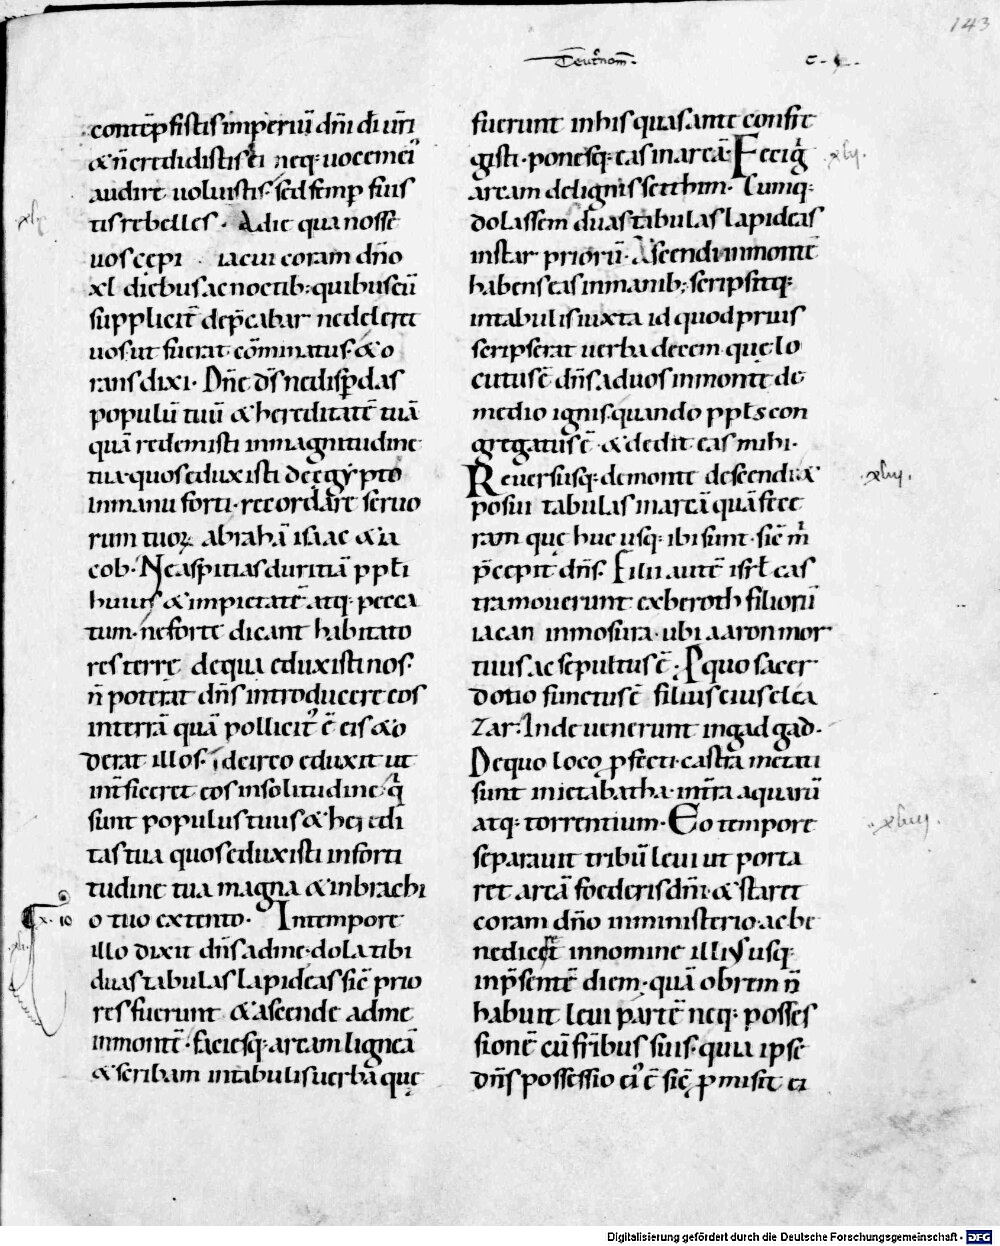 143
Deut͛nom̄·
C·
contēpsistis imperiū dn̄i dī ur̄i
& n̄ credidistis ei neq; uocem ei᾽
audire uoluistis· sed semp̄ fuis
tis rebelles· A die qua nosse
uos cępi iacui coram dn̄o
xl diebus ac noctib; quibus eū
supplicit͛ dep̄cabar ne deleret
uos ut fuerat cōminatus· & o
rans dixi· Dn̄e ds̄ ne disꝑdas
populū tuū & hereditatē tuā
quā redemisti in magnitudine
tua· quos eduxisti de ęgypto
in manu forti· recordare seruo
rum tuoꝝ abrahā isaac & ia
cob· Ne aspitias duritiā ppl̄i
huius & impietatē atq; pecca
tum· ne forte dicant habitato
res terrę de qua eduxisti nos·
n̄ poterat dn̄s introducere eos
in terrā quā pollicit᾽ ē eis & o
derat illos· idcirco eduxit ut
int͛ficeret eos in solitudine· q̄
sunt populus tuus & heredi
tas tua quos eduxisti in forti
tudine tua magna & in brachi
o tuo extento· In tempore
illo dixit dn̄s ad me· dola tibi
duas tabulas lapideas sic̄ prio
res fuerunt & ascende ad me
in montē· faciesq; arcam ligneā
& scribam in tabulis uerba quę
fuerunt in his quas ante confre
gisti· ponesq; eas in arcā· Feci g͛
arcam de lignis setthim· Cumq;
dolassem duas tabulas lapideas
instar priorū· Ascendi in montē
habens eas in manib; scripsitq;
in tabulis iuxta id quod prius
scripserat uerba decem· quę lo
cutus ē dn̄s ad uos in monte de
medio ignis quando ppl̄s con
gregatus ē· & dedit eas mihi·
Reuersusq; de monte descendi &
posui tabulas in arcā quā fece
ram quę huc usq; ibi sunt· sic̄ m͛
p̄cepit dn̄s· Filii autē isrl̄ cas
tra mouerunt ex beroth filiorū
iacan in mosura· ubi aaron mor
tuus ac sepultus ē· P quo sacer
dotio functus ē filius eius elea
zar· Inde uenerunt in gadgad·
De quo loco ꝓfecti· castra metati
sunt in ietabatha· in tr̄a aquarū
atq; torrentium· Eo tempore
separauit tribū leui ut porta
ret arcā foederis dn̄i· & staret
coram dn̄o in ministerio· ac be
nediceret in nomine illius usq;
in p̄sentē diem· quā obrem n̄
habuit leui partē neq; posses
sionē cū fr̄ibus suis· quia ipse
dn̄s possessio ei᾽ ē sic̄ ꝓmisit ei
xl
x· 10
xli
xlii
xliii
xliiii
Digitalisierung gefördert durch die Deutsche Forschungsgemeinschaft - DFG